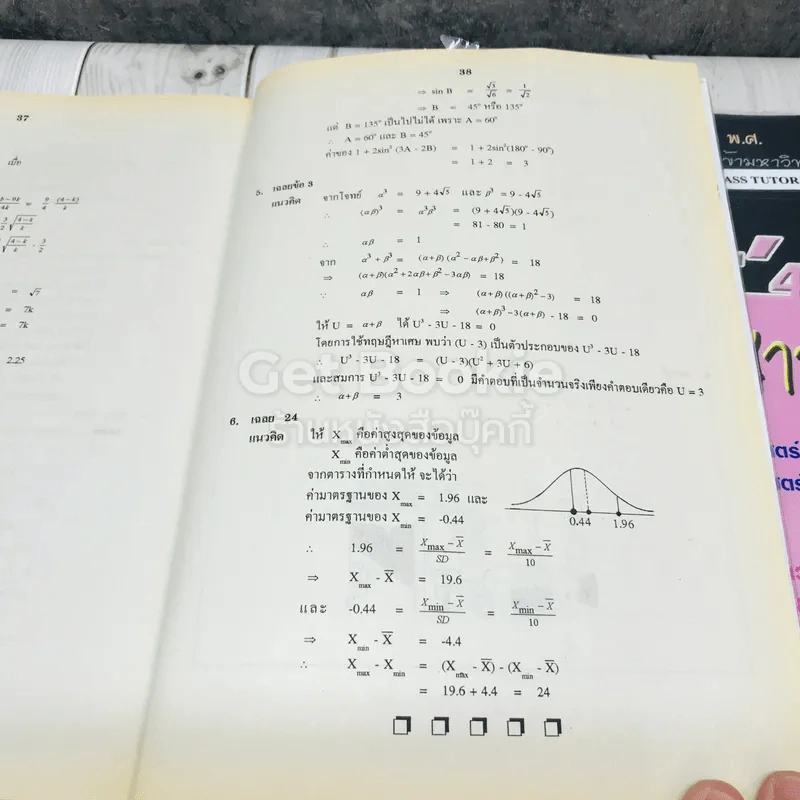 37
เมื่อ
= √7
= 7k
= 7k
2.25
38
⇒ sin B = √3/√6 = 1/√2
⇒ B = 45° หรือ 135°
แต่ B = 135° เป็นไปไม่ได้ เพราะ A = 60°
∴ A = 60° และ B = 45°
ค่าของ 1 + 2sin² (3A - 2B) = 1 + 2sin²(180° - 90°)
= 1 + 2 = 3
5. เฉลยข้อ 3
แนวคิด จากโจทย์ α³ = 9 + 4√5 และ β³ = 9 - 4√5
∴ (αβ)³ = α³β³ = (9 + 4√5)(9 - 4√5)
= 81 - 80 = 1
∴ αβ = 1
จาก α³ + β³ = (α+β) (α² - αβ+β²) = 18
⇒ (α+β)(α² +2αβ+β² -3αβ) = 18
∵ αβ = 1 ⇒ (α+β)((α+β)² -3) = 18
⇒ (α+β)³ -3(α+β) - 18 = 0
ให้ U = α+β ได้ U³ - 3U - 18 = 0
โดยการใช้ทฤษฎีหาเศษ พบว่า (U - 3) เป็นตัวประกอบของ U³ - 3U - 18
∴ U³ - 3U - 18 = (U - 3)(U² + 3U + 6)
และสมการ U³ - 3U - 18 = 0 มีคำตอบที่เป็นจำนวนจริงเพียงคำตอบเดียวคือ U = 3
∴ α+β = 3
Get Bookie
ร้านหนังสือบุ๊คกี้
6. เฉลย 24
แนวคิด ให้ Xmax คือค่าสูงสุดของข้อมูล
Xmin คือค่าต่ำสุดของข้อมูล
จากตารางที่กำหนดให้ จะได้ว่า
ค่ามาตรฐานของ Xmax = 1.96 และ
ค่ามาตรฐานของ Xmin = -0.44
0.44 1.96
∴ 1.96 = (Xmax - X̅)/SD = (Xmax - X̅)/10
⇒ Xmax - X̅ = 19.6
และ -0.44 = (Xmin - X̅)/SD = (Xmin - X̅)/10
⇒ Xmin - X̅ = -4.4
∴ Xmax - Xmin = (Xmax - X̅) - (Xmin - X̅)
= 19.6 + 4.4 = 24
พ.ศ.
ASS TUTOR